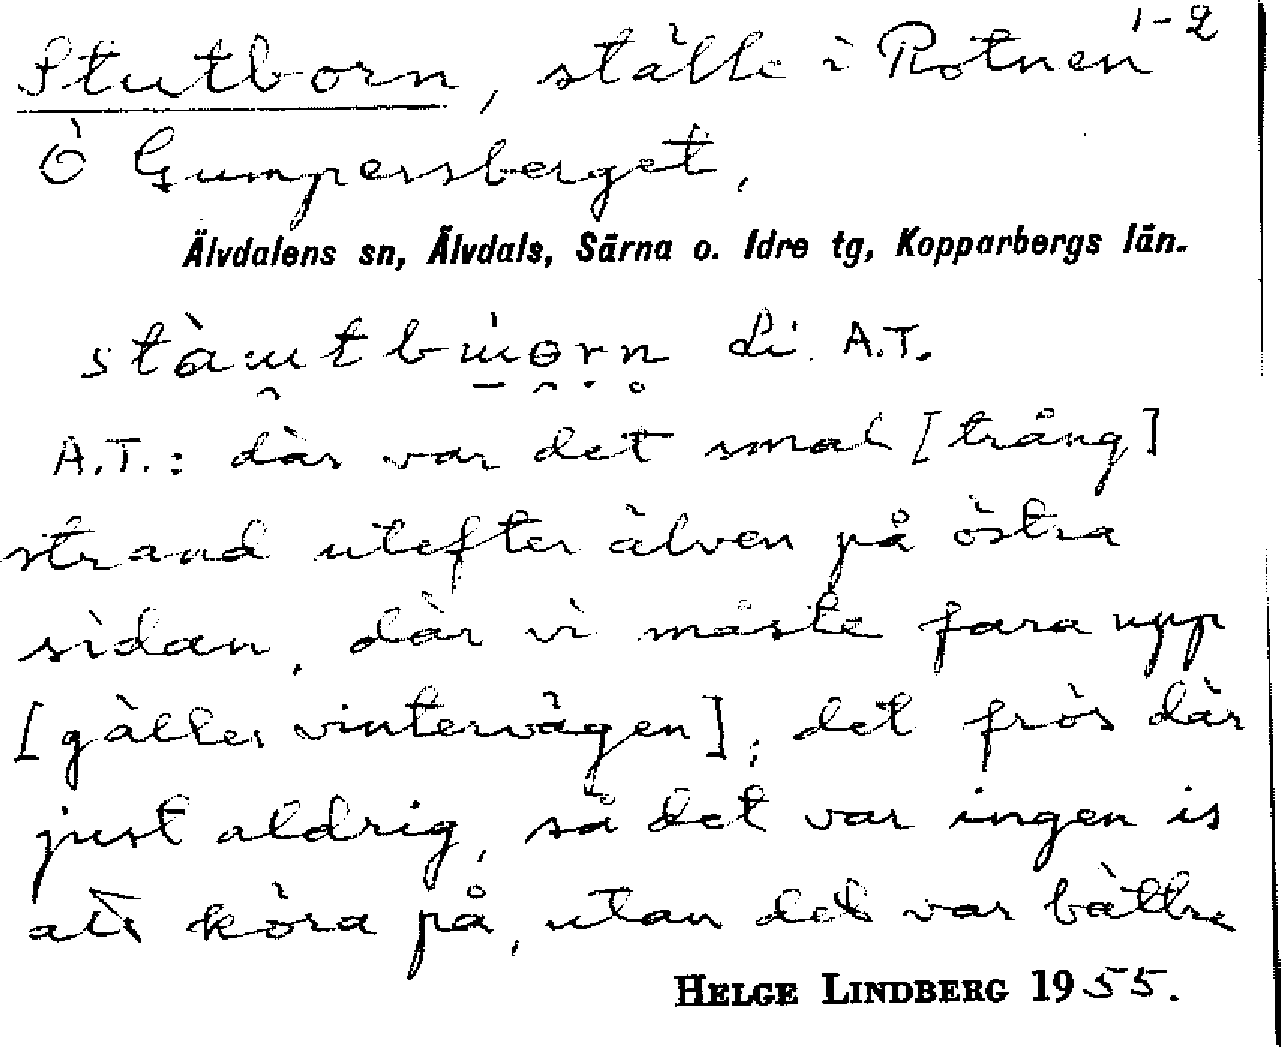 1-2
Stutborn, ställe i Rotnen
Ö Gumpersberget,
Älvdalens sn, Älvdals, Särna o. Idre tg, Kopparbergs län.
di. A.T.
A.T.: där var det smal [trång]
strand utefter älven på östra
sidan, där vi måste fara upp
[gäller vintervägen]; det frös där
just aldrig, så det var ingen is
att köra på, utan det var bättre
HELGE LINDBERG 1955.